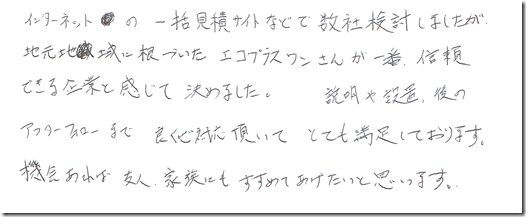 インターネットの 一括見積サイトなどで数社検討しましたが、
地元地域に根づいた エコプラスワンさんが一番、信頼
できる企業と感じて 決めました。 説明や設置、後の
アフターフォローまで 良くご対応頂いて とても満足しております。
機会あれば 友人、家族にも すすめてあげたいと思います。